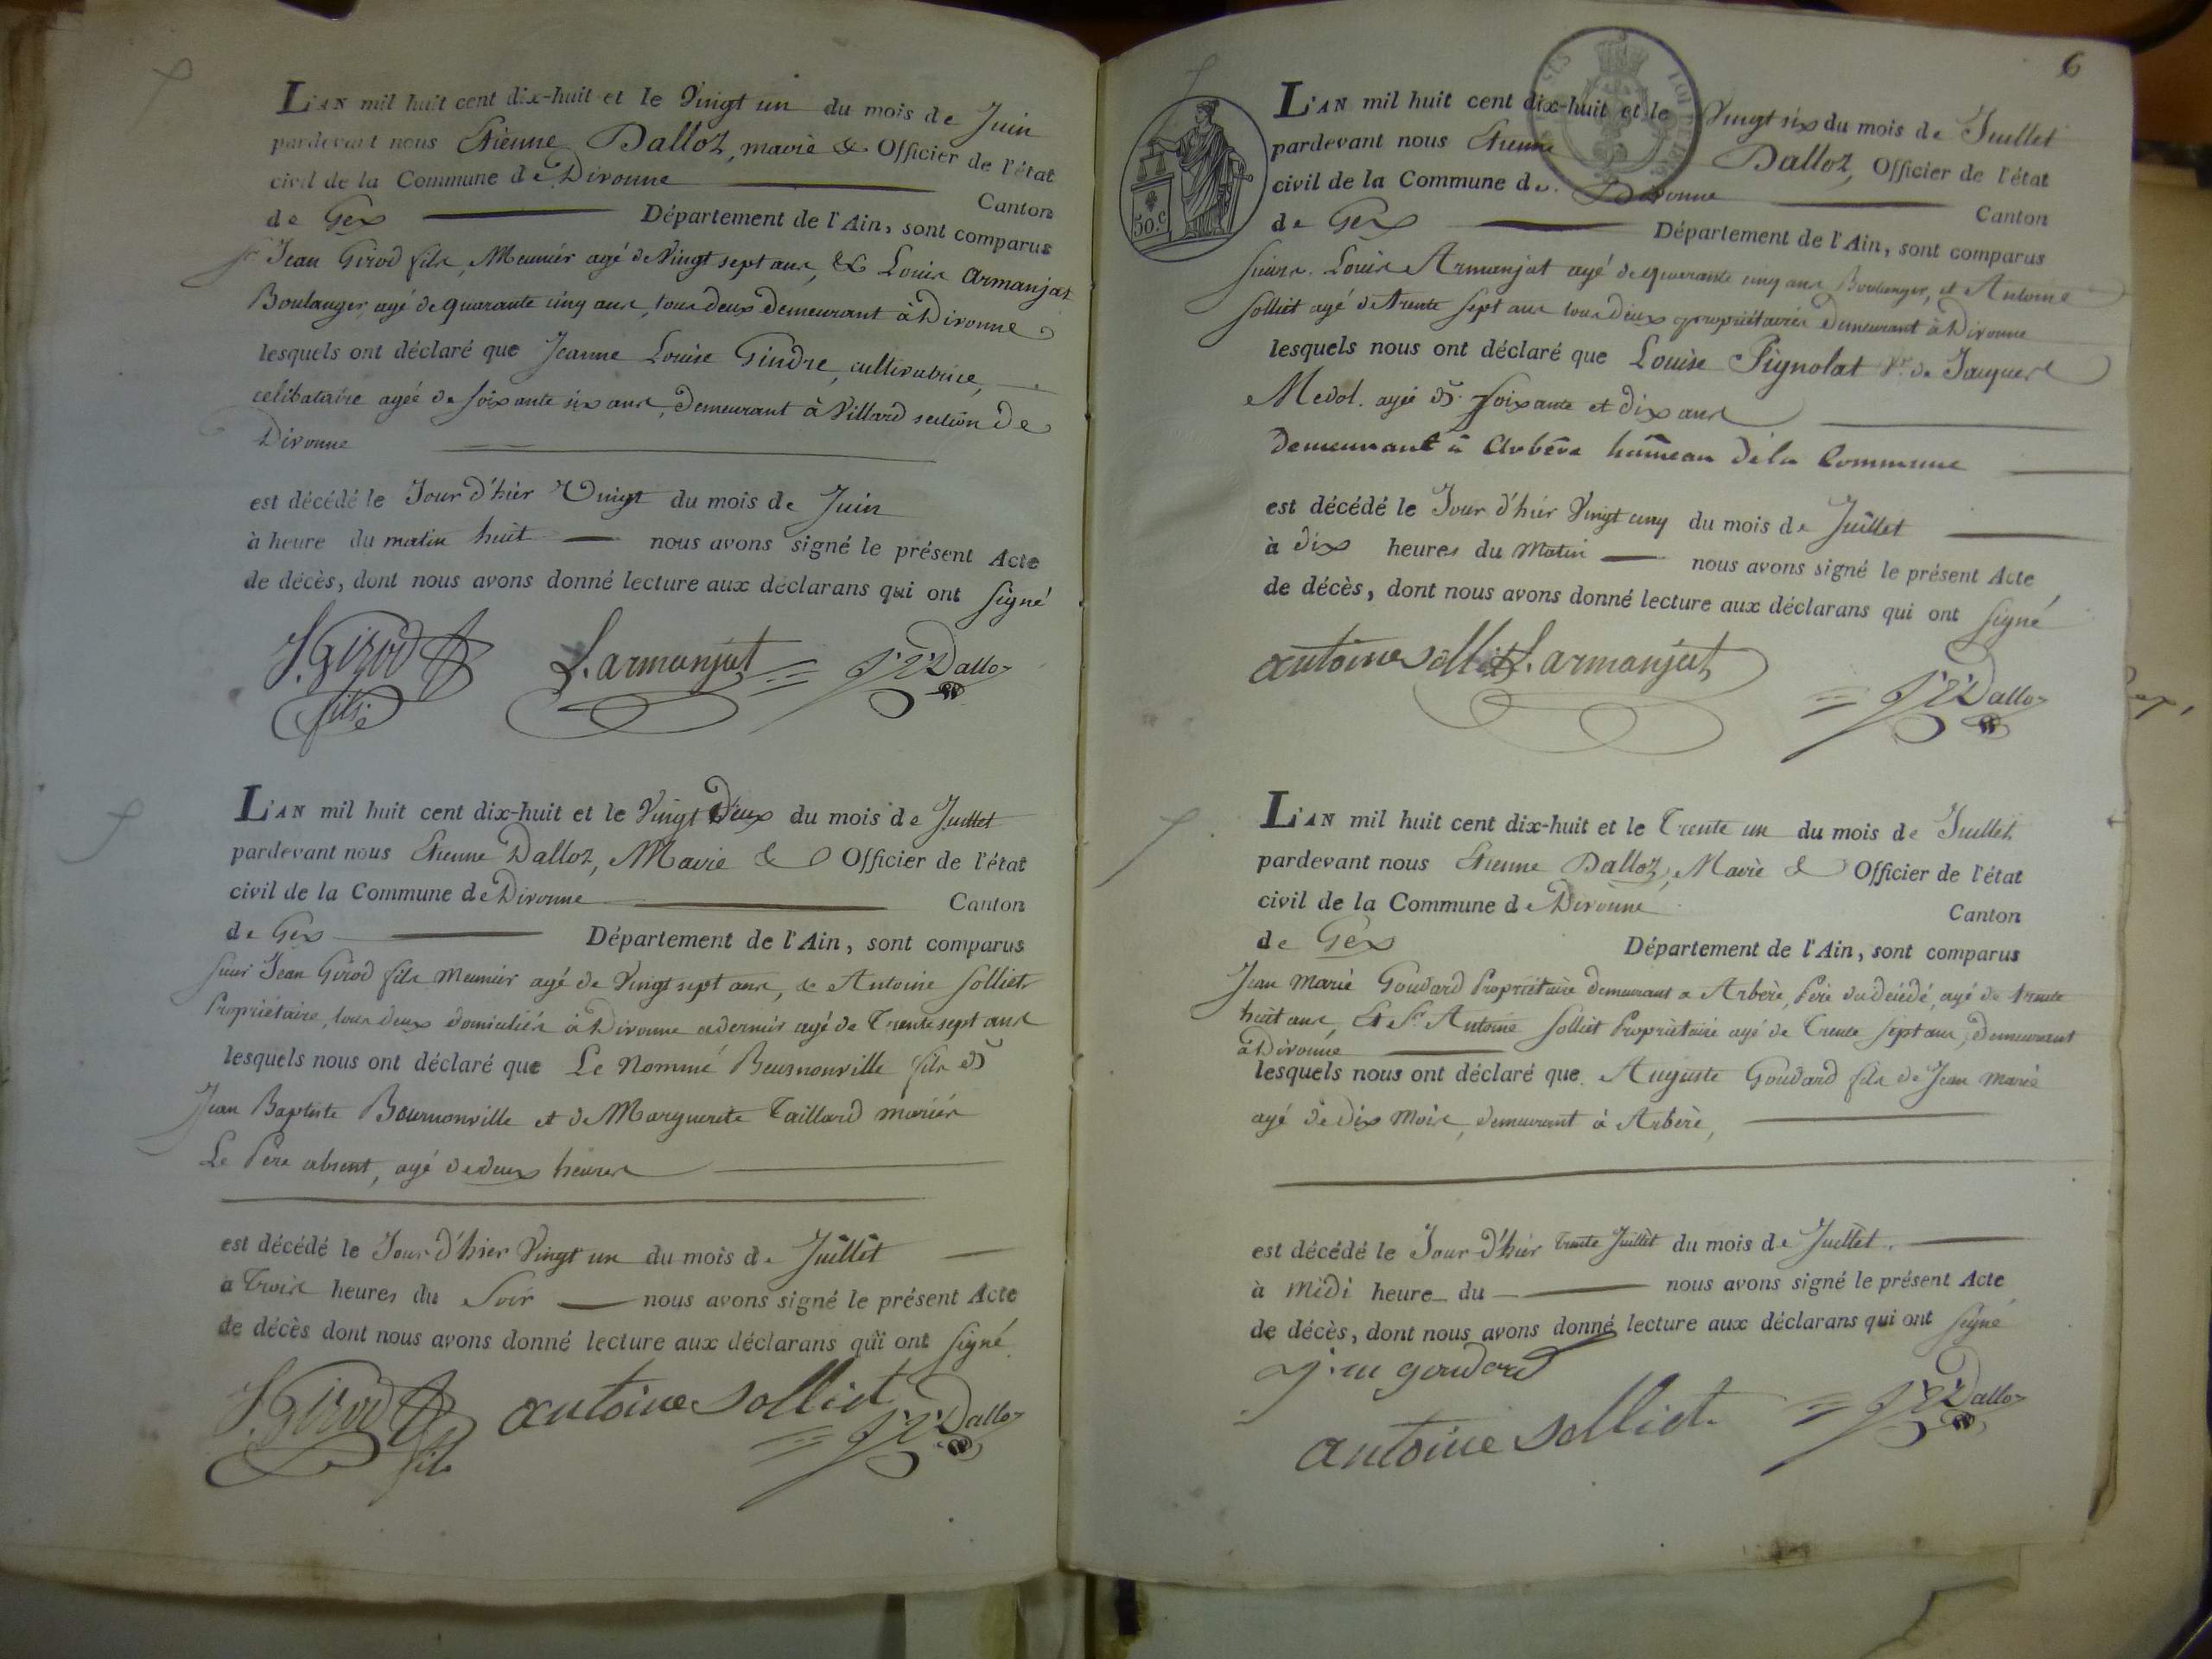 L'AN mil huit cent dix-huit et le Vingt un du mois de Juin
pardevant nous Etienne Dalloz, maire & Officier de l'état
civil de la Commune de Divonne Canton
de Gex Département de l'Ain, sont comparus
Sr Jean Girod fils, Meunier agé de Vingt sept ans, & Louis Armanjat
Boulanger, agé de quarante cinq ans, tous deux demeurant à Divonne
lesquels ont déclaré que Jeanne Louise Gindre, cultivatrice,
celibataire agée de soixante six ans, demeurant à Villard section de
Divonne
est décédé le Jour d'hier Vingt du mois de Juin
à heure du matin huit nous avons signé le présent Acte
de décès, dont nous avons donné lecture aux déclarans qui ont signé
J. Girod L. armanjat Dalloz
fils
L'AN mil huit cent dix-huit et le Vingt Deux du mois de Juillet
pardevant nous Etienne Dalloz, Maire & Officier de l'état
civil de la Commune de Divonne Canton
de Gex Département de l'Ain, sont comparus
sieur Jean Girod fils Meunier agé de Vingt sept ans, & Antoine Solliet
Propriétaire, tous deux domiciliés à Divonne a dernier agé de Trente sept ans
lesquels nous ont déclaré que Le Nommé Beurnonville fils de
Jean Baptiste Bournonville et de Marguerite Taillard mariés
Le Pere absent, agé de deux heures
est décédé le Jour d'hier Vingt un du mois de Juillet
à Trois heures du Soir nous avons signé le présent Acte
de décès dont nous avons donné lecture aux déclarans qui ont signé
J. Girod antoine Solliet Dalloz
fils
6
50.C
L'AN mil huit cent dix-huit et le Vingt six du mois de Juillet
pardevant nous Etienne Dalloz, Officier de l'état
civil de la Commune de Divonne Canton
de Gex Département de l'Ain, sont comparus
Louis Armanjat agé de quarante cinq ans Boulanger, et Antoine
Solliet agé de trente sept ans tous deux propriétaires demeurant à Divonne
lesquels nous ont déclaré que Louise Pignolat Ve de Jaques
Medol. agée de soixante et dix ans
demeurant à Arbère hameau de la Commune
est décédé le Jour d'hier Vingt cinq du mois de Juillet
à dix heures du Matin nous avons signé le présent Acte
de décès, dont nous avons donné lecture aux déclarans qui ont signé
antoine solliet L. armanjat
Dalloz
L'AN mil huit cent dix-huit et le Trente un du mois de Juillet
pardevant nous Etienne Dalloz, Maire & Officier de l'état
civil de la Commune de Divonne Canton
de Gex Département de l'Ain, sont comparus
Jean Marie Goudard Propriétaire demeurant a Arbère, Père du décédé, agé de trente
huit ans, Et Sr Antoine Solliet Propriétaire agé de Trente Sept ans, demeurant
à Divonne
lesquels nous ont déclaré que Auguste Goudard fils de Jean Marie
agé de dix Mois, demeurant à Arbère,
est décédé le Jour d'hier trente Juillet du mois de Juillet
à midi heure du nous avons signé le présent Acte
de décès, dont nous avons donné lecture aux déclarans qui ont signé
j. m goudard
antoine Solliet Dalloz